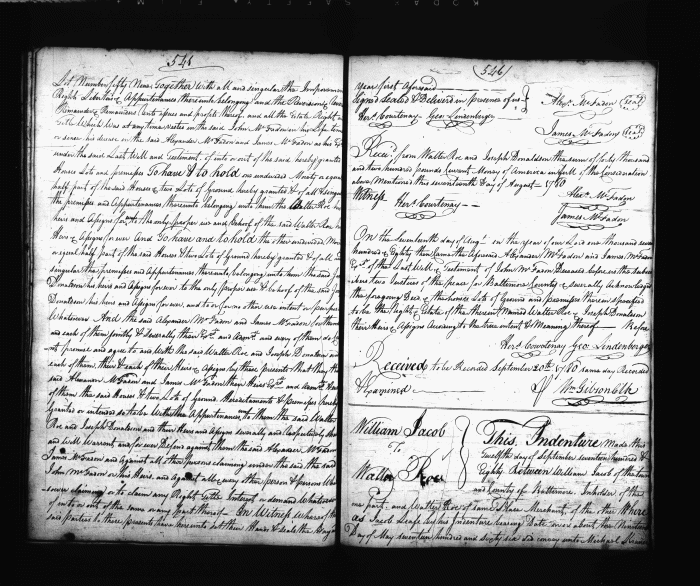 546
Lot Number fifty Nine Together with all and singular the Improvements
Rights Liberties & Appurtenances thereunto belonging and the Reversions
Remainder & Remainders Rents issues and profits thereof and all the Estate Right
which Was at any time vested in the said John McFadon in his life time
or since his decease in the said Alexander McFadon and James McFadon as his
under the said Last Will and Testament of into or out of the said hereby granted
House Lots and premises To have & to hold one undivided Moiety or equal
half part of the said House & two Lots of Ground hereby granted & of all &
the premises and Appurtenances thereunto belonging unto him the Walter Roe his
heirs and Assigns for to the only proper use and behoof of the said Walter Roe his
Heirs & Assigns for ever And To have and to hold the other undivided
or equal half part of the said House & two Lots of Ground hereby granted & of all &
singular the premises and Appurtenances thereunto belonging unto him the said
Donaldson his heirs and Assigns for ever to the only proper use & behoof of the said
Donaldson his heirs and Assigns for ever, and to or for no other use intent or purpose
Whatsoever And the said Alexander McFadon and James McFadon for them
and each of them jointly & severally their and every of them do
premise and agree to and with the said Walter Roe and Joseph Donaldson and
each of them, their & each of their Heirs & Assigns by these presents that they the
said Alexander McFadon and James McFadon they Heirs
of them the said House & two Lots of Ground Hereditaments & premises hereby
Granted or intended so to be With the Appurtenances to them the said Walter
Roe and Joseph Donaldson and their Heirs and Assigns severally and respectively
and Will Warrant and for ever Defend against them the said Alexander McFadon
James McFadon and Against all other persons claiming under the said
John McFadon or his Heirs, and against all & every other person & persons
soever claiming or to claim any Right Title Interest or demand Whatsoever
of in to or out of the same or any part thereof In Witness whereof the
said parties to these presents have hereunto set their Hands & Seals the Day &
546
Year first aforesaid
Signed Sealed & Delivered in presence of us Alexr. McFadon Seal
Herc. Courtenay Geo. Lindenberger
James McFadon Seal
Recd. from Walter Roe and Joseph Donaldson the sum of forty thousand
and two hundred pounds Current Money of America in full of the Consideration
above Mentioned this seventeenth day of August 1780
Alexr. McFadon
Witness Herc. Courtenay
James McFadon
On the seventeenth day of Augt. in the Year of our Lord one thousand seven
hundred & Eighty then Came the aforesaid Alexander McFadon and James McFadon
of the Last Will & Testament of John McFadon Deceased before us the
two Justices of the peace for Baltimore County & severally Acknowledged
the foregoing Deed & the house Lots of Ground and premises therein specified
to be the Right & Estate of the therein Named Walter Roe & Joseph Donaldson
their Heirs & Assigns According to the true intent & Meaning thereof Before
Herc. Courtenay Geo. Lindenberger
Received to be Recorded September 20th. 1780 same day Recorded
& Examined
Wm. Gibson Clk
William Jacob
To
Walter Roe
This Indenture Made this
twelfth day of September seventeen hundred &
Eighty Between William Jacob of the town
and County of Baltimore Inholder of the
one part and Walter Roe of same place Merchant of the other Where
as Jacob by his Indenture bearing Date on or about the
Day of May seventeen hundred and sixty six did convey unto Michael